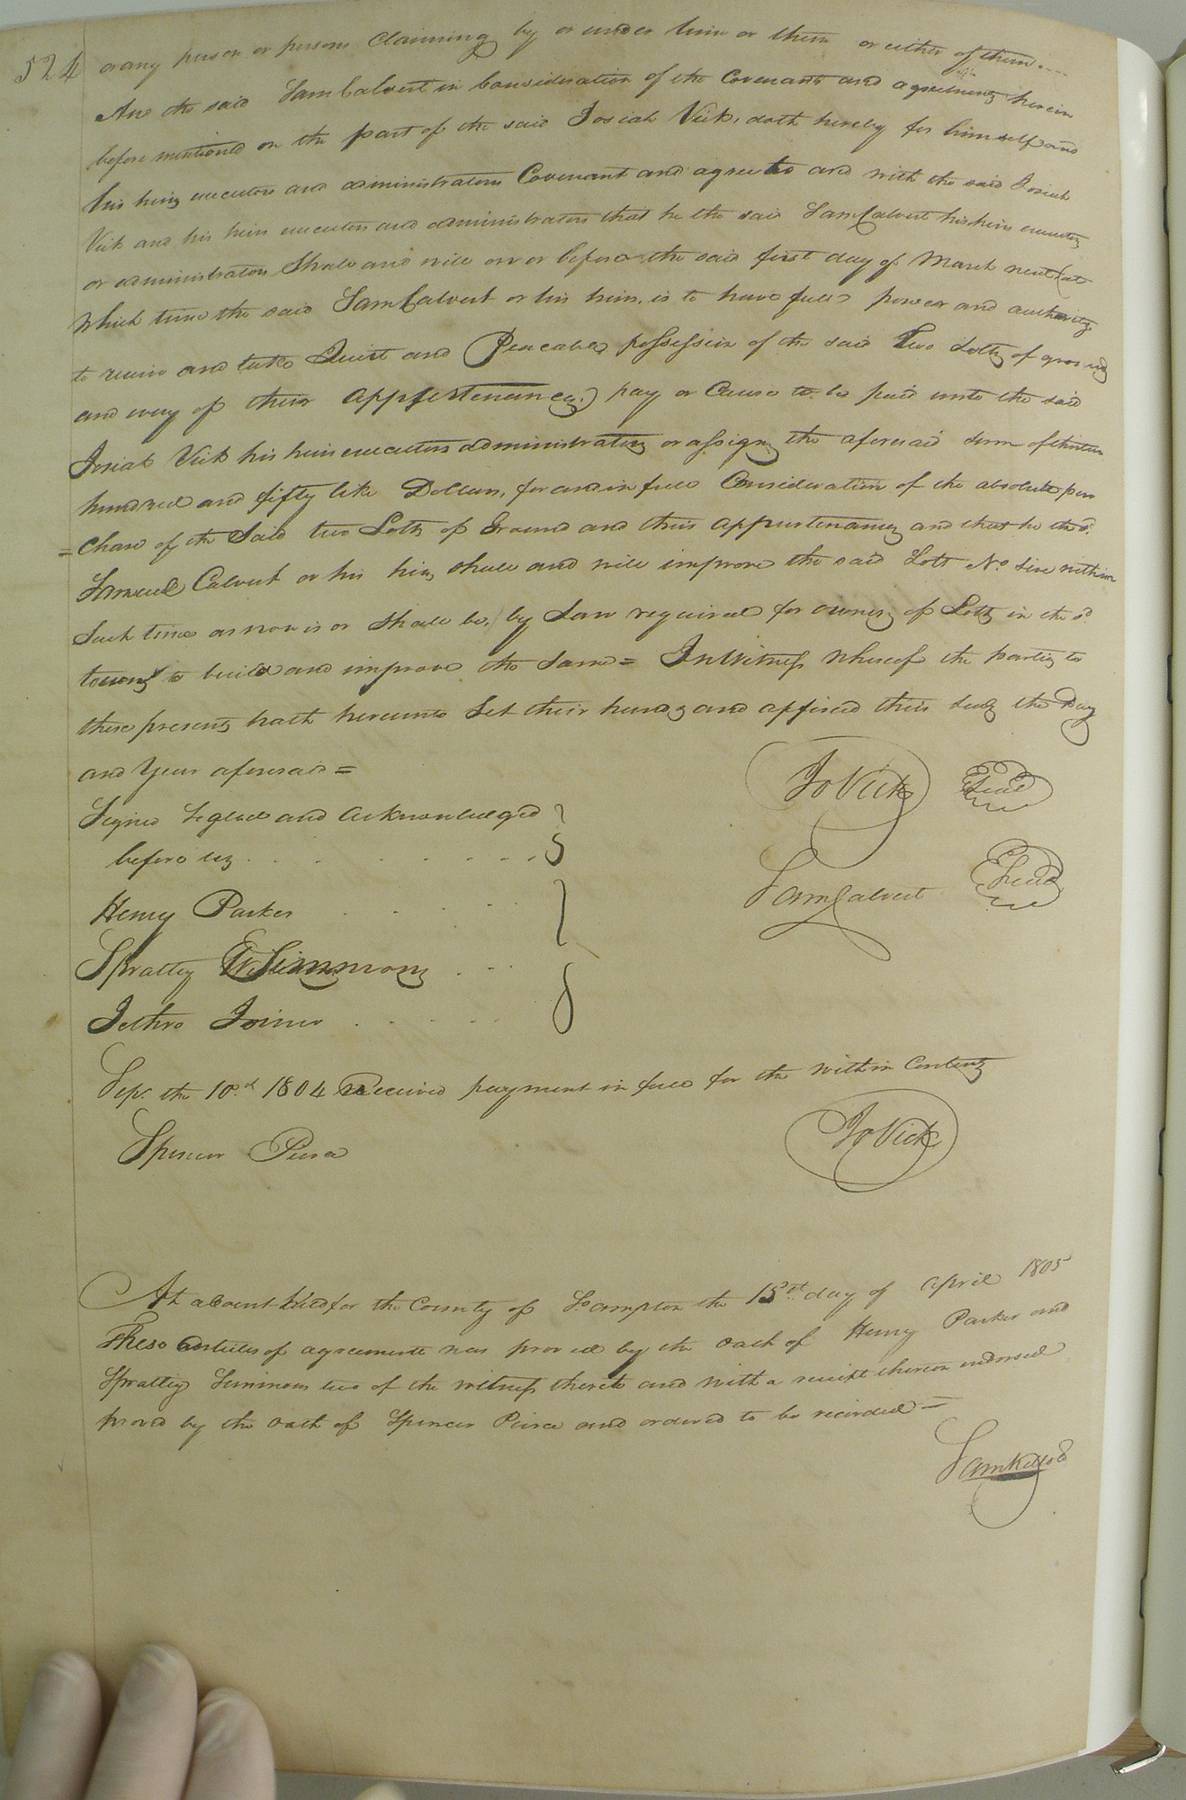 524
or any person or persons Claiming by or under him or them or either of them....
And the said Sam Calvert in Consideration of the Covenants and agreements herein
before mentioned on the part of the said Josiah Vick, doth hereby for himself and
his heirs executors and administrators Covenant and agree to and with the said Josiah
Vick and his heirs executors and administrators that he the said Sam Calvert his heirs executors
or administrators Shall and will on or before the said first day of March next (at
which time the said Sam Calvert or his heirs, is to have full power and authority
to receive and take Quiet and Peacable possession of the said Two Lotts of ground
and every of their Appurtenances) pay or Cause to be paid unto the said
Josiah Vick his heirs executors administrators or assigns the aforesaid sum of thirteen
hundred and fifty like Dollars, for and in full Consideration of the absolute pur
=chase of the Said two Lotts of Ground and their appurtenances and that he the sd.
Samuel Calvert or his heirs shall and will improve the said Lott No. Six within
Such time as now is or Shall be, by Law required for owners of Lotts in the sd.
town to build and improve the Same = In Witness whereof the parties to
these presents hath hereunto Set their hands and affixed their seals the Day
and Year aforesaid =
Signed Sealed and Acknowledged
before us
Jo Vick Seal
Sam Calvert Seal
Henry Parker
Spratley W Simmons
Jethro Joiner
Sepr. the 10d. 1804 Received payment in full for the within Contents
Spencer Peirce Jo Vick
At a Court held for the County of So.ampton the 15st. day of April 1805
These Articles of agreements was proved by the Oath of Henry Parker and
Spratley Simmons two of the witness thereto and with a receipt thereon endorsed
proved by the oath of Spencer Peirce and ordered to be recorded =
Sam Kello